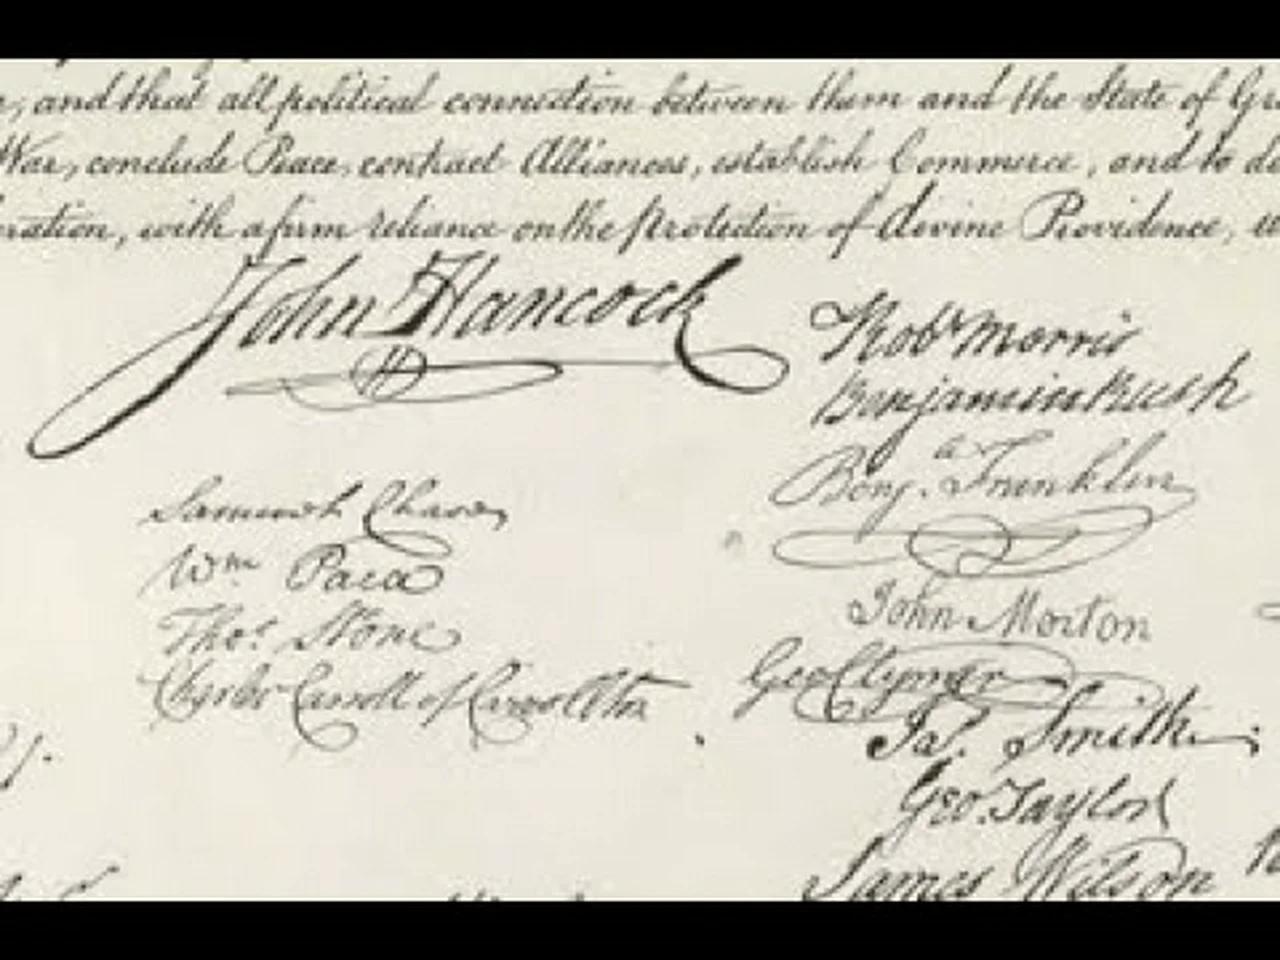 and that all political connection between them and the State of
War, conclude Peace, contract Alliances, establish Commerce, and to
with a firm reliance on the protection of divine Providence,
John Hancock
Samuel Chase
Wm Paca
Thos. Stone
Charles Carroll of Carrollton
Robt Morris
Benjamin Rush
Benja. Franklin
John Morton
Geo Clymer
Jas. Smith.
Geo. Taylor
James Wilson